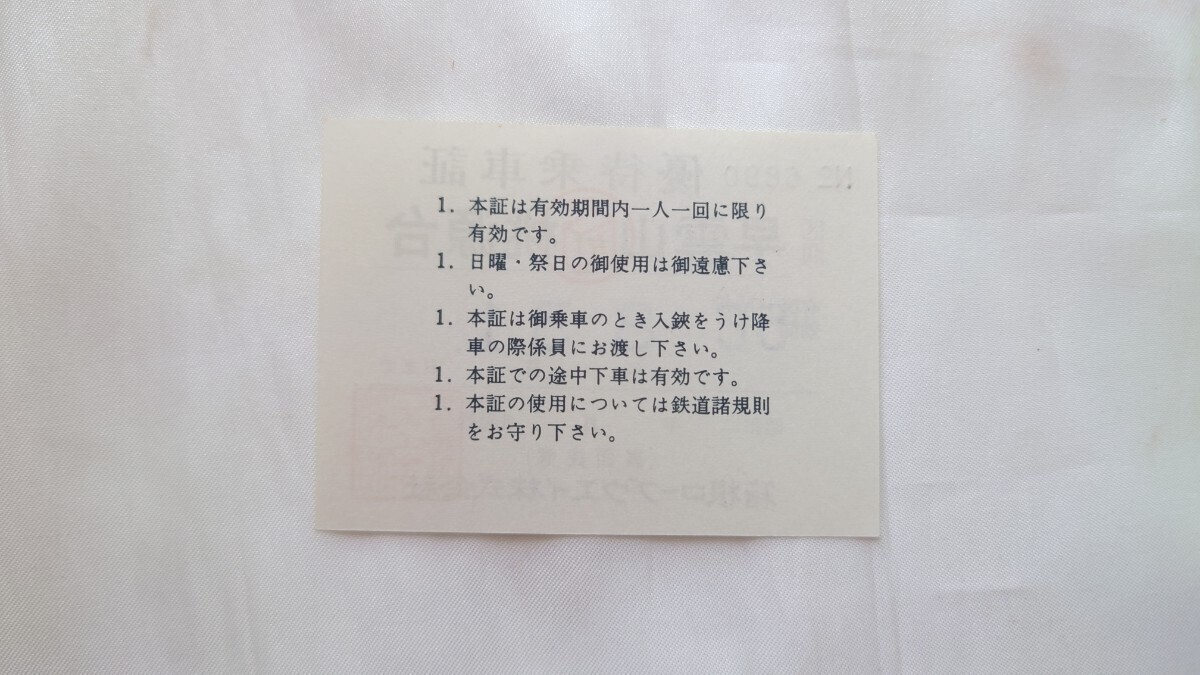 1. 本証は有効期間内一人一回に限り
有効です。
1. 日曜・祭日の御使用は御遠慮下さ
い。
1. 本証は御乗車のとき入鋏をうけ降
車の際係員にお渡し下さい。
1. 本証での途中下車は有効です。
1. 本証の使用については鉄道諸規則
をお守り下さい。